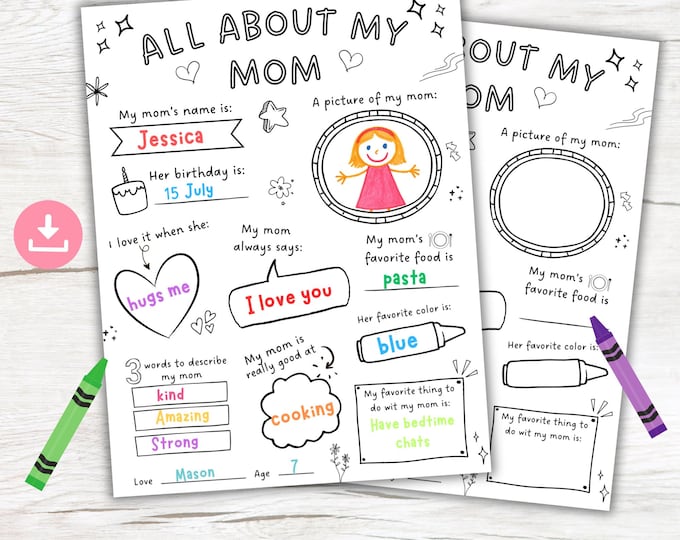 ALL ABOUT MY
MOM
My mom's name is:
Jessica
Her birthday is:
15 July
A picture of my mom:
I love it when she:
hugs me
My mom
always says:
I love you
My mom's
favorite food is
pasta
Her favorite color is:
blue
3 words to describe
my mom
kind
Amazing
Strong
My mom is
really good at
cooking
My favorite thing to
do wit my mom is:
Have bedtime
chats
Love Mason Age 7
ABOUT MY
MOM
A picture of my mom:
My mom's
favorite food is
Her favorite color is:
My favorite thing to
do wit my mom is: